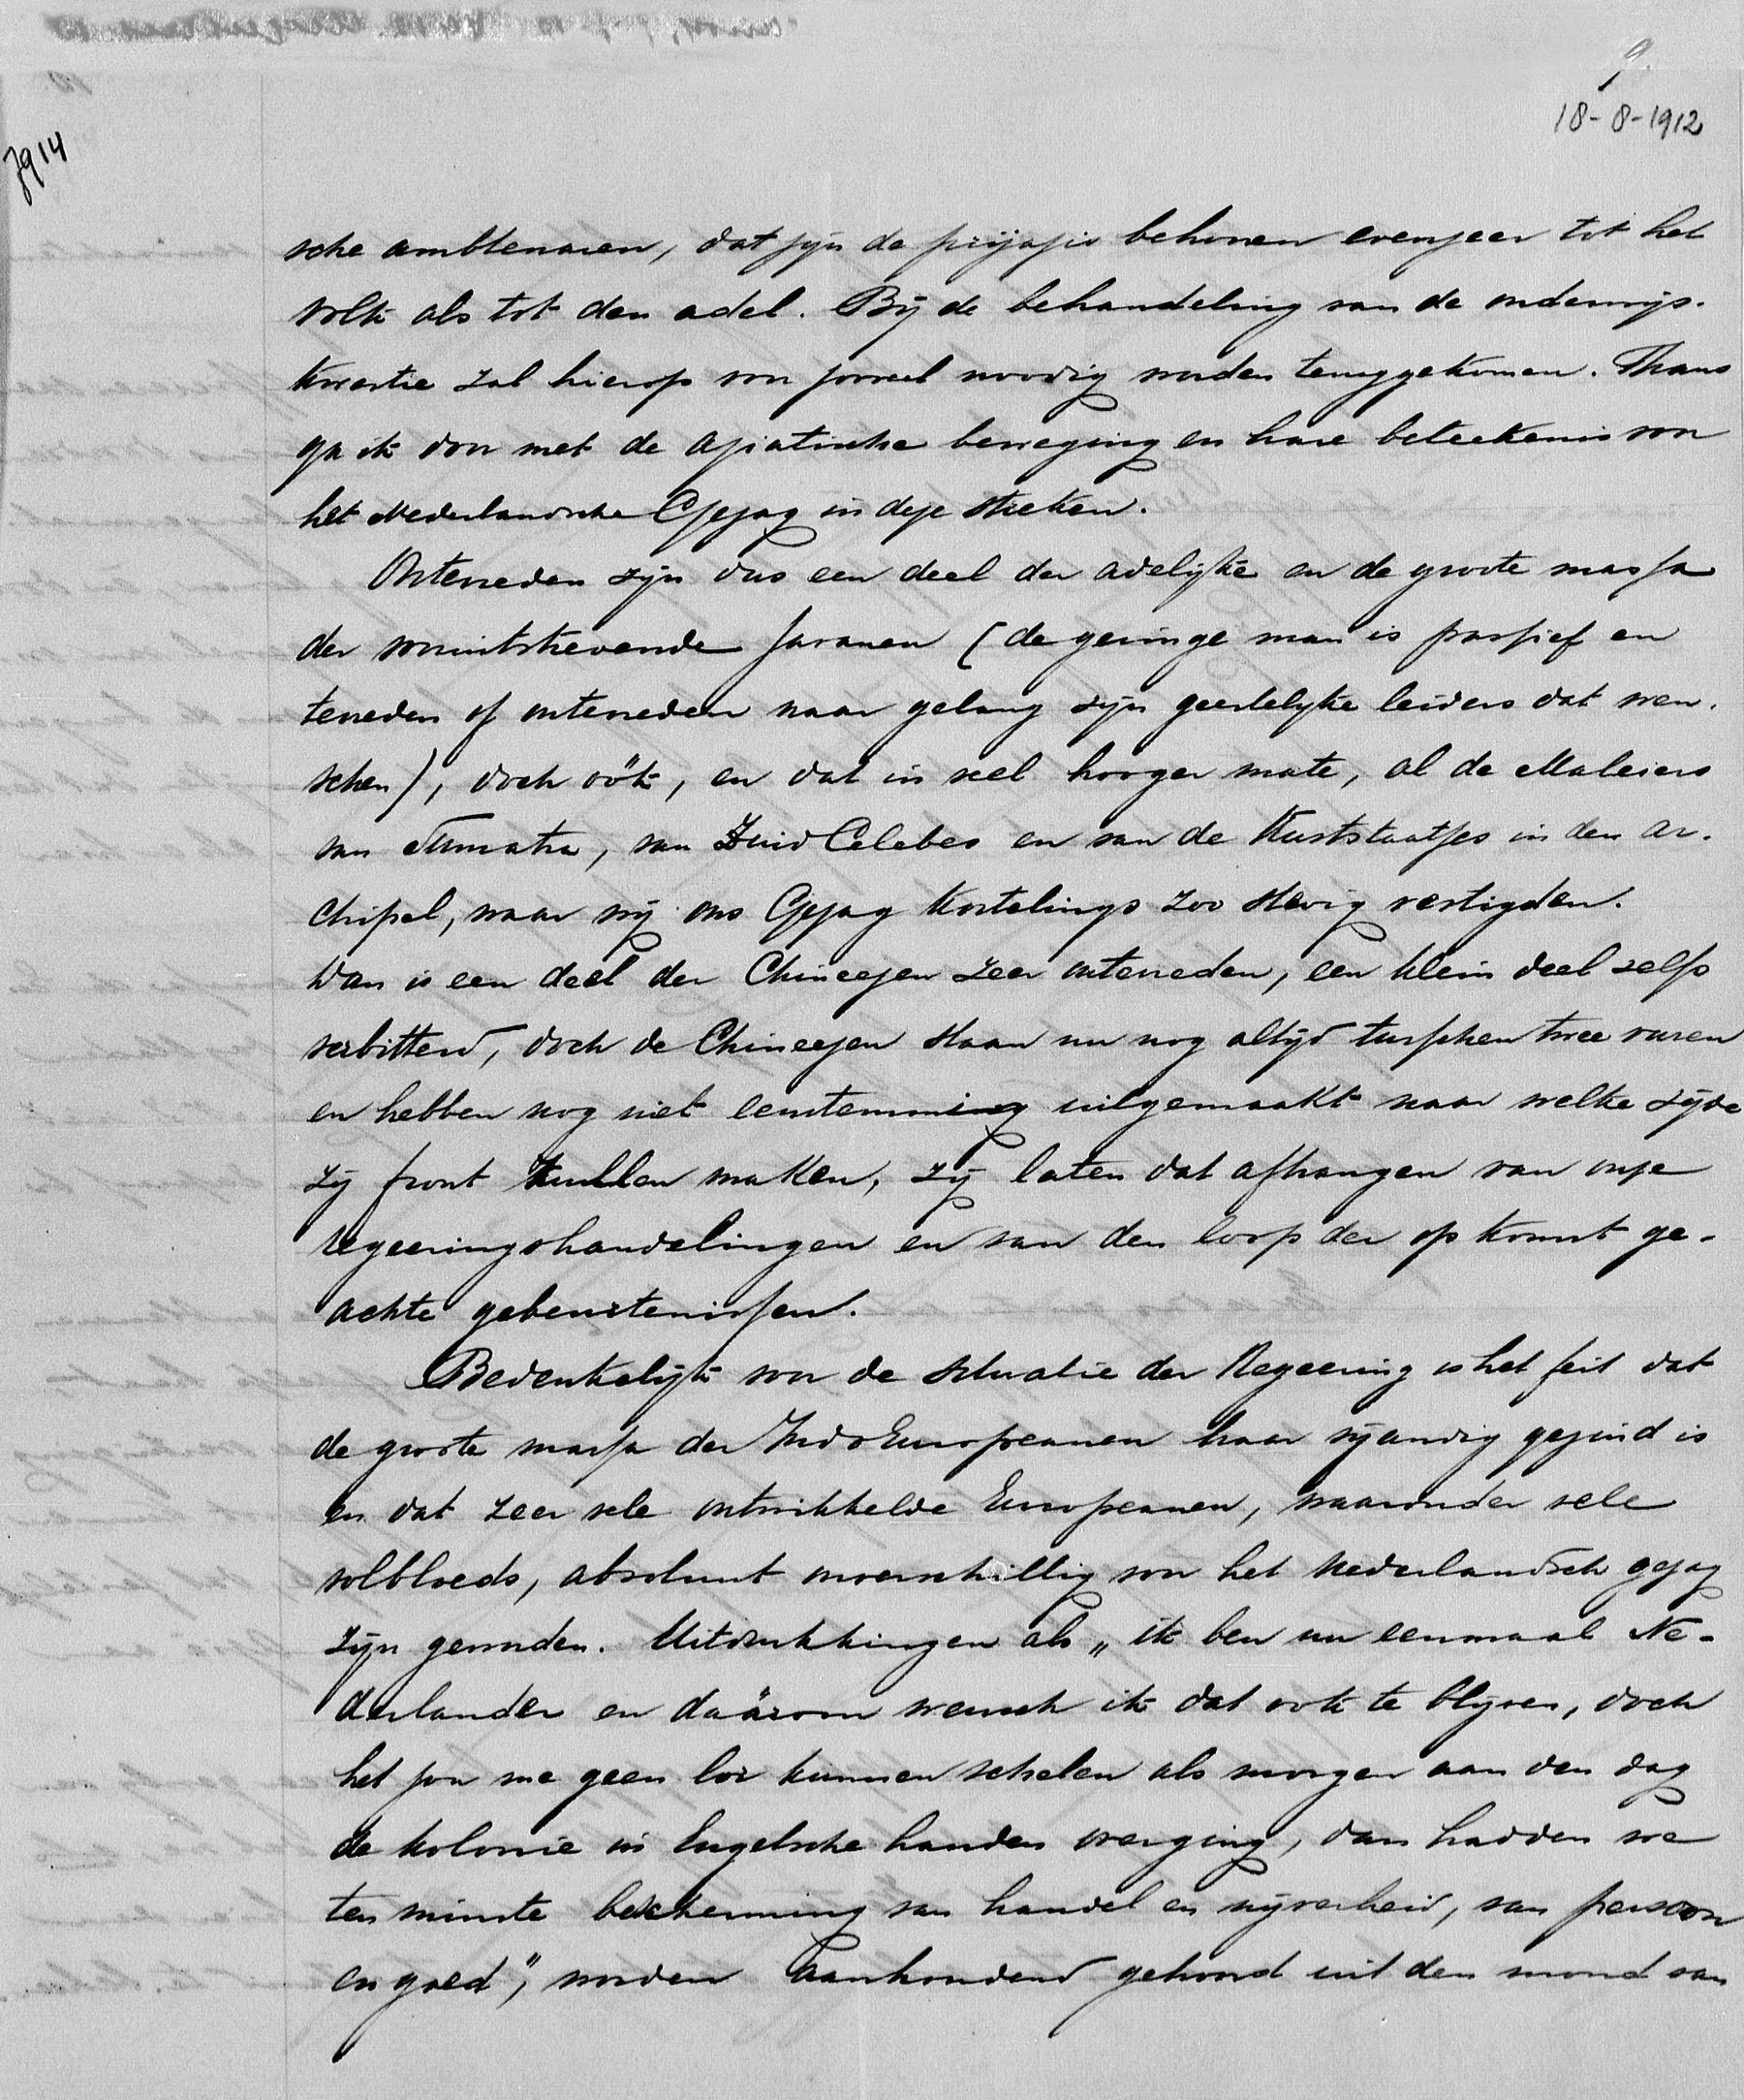 9.
18-8-1912
7914
sche ambtenaren, dat zijn de prijajis behooren evenzeer tot het
volk als tot den adel. Bij de behandeling van de onderwijs-
kwestie zal hierop voor zooveel noodig worden teruggekomen. Thans
ga ik door met de Aziatische beweging en hare beteekenis voor
het Nederlandsche Gezag in deze streken.
Ontevreden zijn dus een deel der adelijke en de groote massa
der vooruitstrevende Javanen (de geringe man is passief en
tevreden of ontevreden naar gelang zijn geestelijke leiders dat wen-
schen), doch oök, en dat in veel hooger mate, al de Maleiers
van Sumatra, van Zuid Celebes en van de Kuststaatjes in den Ar-
chipel, waar wij ons Gezag kortelings zoo stevig vestigden.
Dan is een deel der Chineezen zeer ontevreden, een klein deel zelfs
verbitterd, doch de Chineezen staan nu nog altijd tusschen twee vuren
en hebben nog niet eenstemmig uitgemaakt naar welke zijde
zij front zullen maken, zij laten dat afhangen van onze
regeeringshandelingen en van den loop der op komst ge-
achte gebeurtenissen.
Bedenkelijk voor de situatie der Regeering is het feit dat
de groote massa der Indo Europeanen haar vijandig gezind is
en dat zeer vele ontwikkelde Europeanen, waaronder vele
volbloeds, absoluut onverschillig voor het Nederlandsch gezag
zijn geworden. Uitdrukkingen als „ik ben nu eenmaal Ne-
derlander en daärom wensch ik dat ook te blijven, doch
het zou me geen lor kunnen schelen als morgen aan den dag
de kolonie in Engelsche handen overging, dan hadden we
ten minste bescherming van handel en nijverheid, van persoon
en goed", worden aanhoudend gehoord uit den mond van